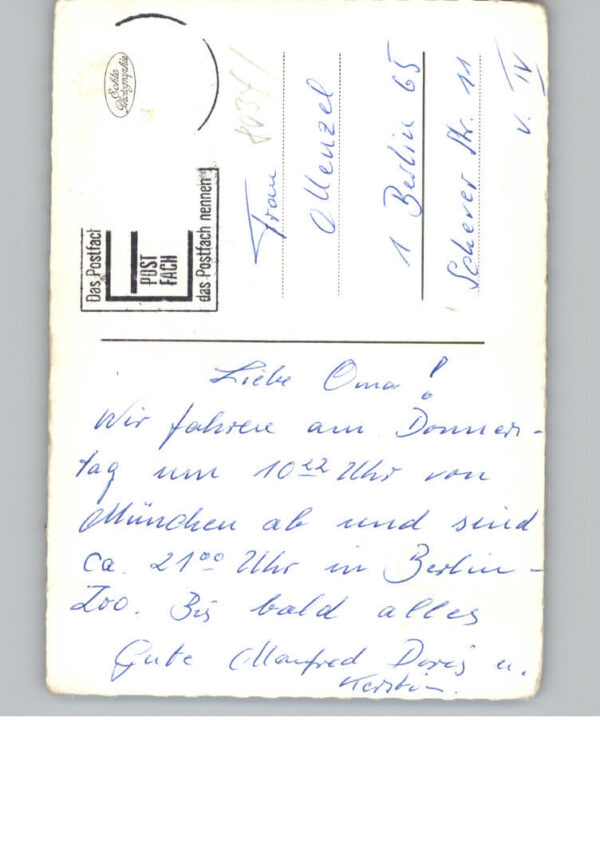 Echte
Photographie
Das Postfach
POST
FACH
das Postfach nennen
Frau
Menzel
1 Berlin 65
Scherer Str. 11
v. IV
Liebe Oma!
Wir fahren am Donners-
tag um 10 22 Uhr von
München ab und sind
ca. 21 00 Uhr in Berlin-
Zoo. Bis bald alles
Gute Manfred Doris u.
Kerstin.